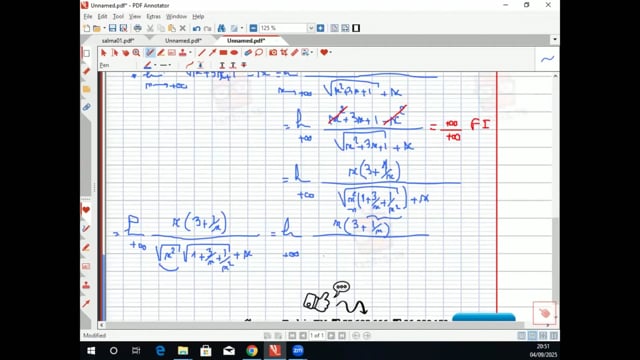 Unnamed.pdf* - PDF Annotator
File Edit View Insert Annotate Tool Window Help
125 %
salma01.pdf* Unnamed.pdf* Unnamed.pdf*
Pen
x → +∞
x → +∞ √(x²+3x+1) + x
= lim +∞ (x² + 3x + 1 - x²) / (√(x²+3x+1) + x) = +∞/+∞ FI
= lim +∞ x(3 + 1/x) / (√(x²(1 + 3/x + 1/x²)) + x)
= lim +∞ x(3 + 1/x) / (√x² √(1 + 3/x + 1/x²) + x) = lim +∞ x(3 + 1/x)
Modified
1 of 1
20:51
04/09/2025